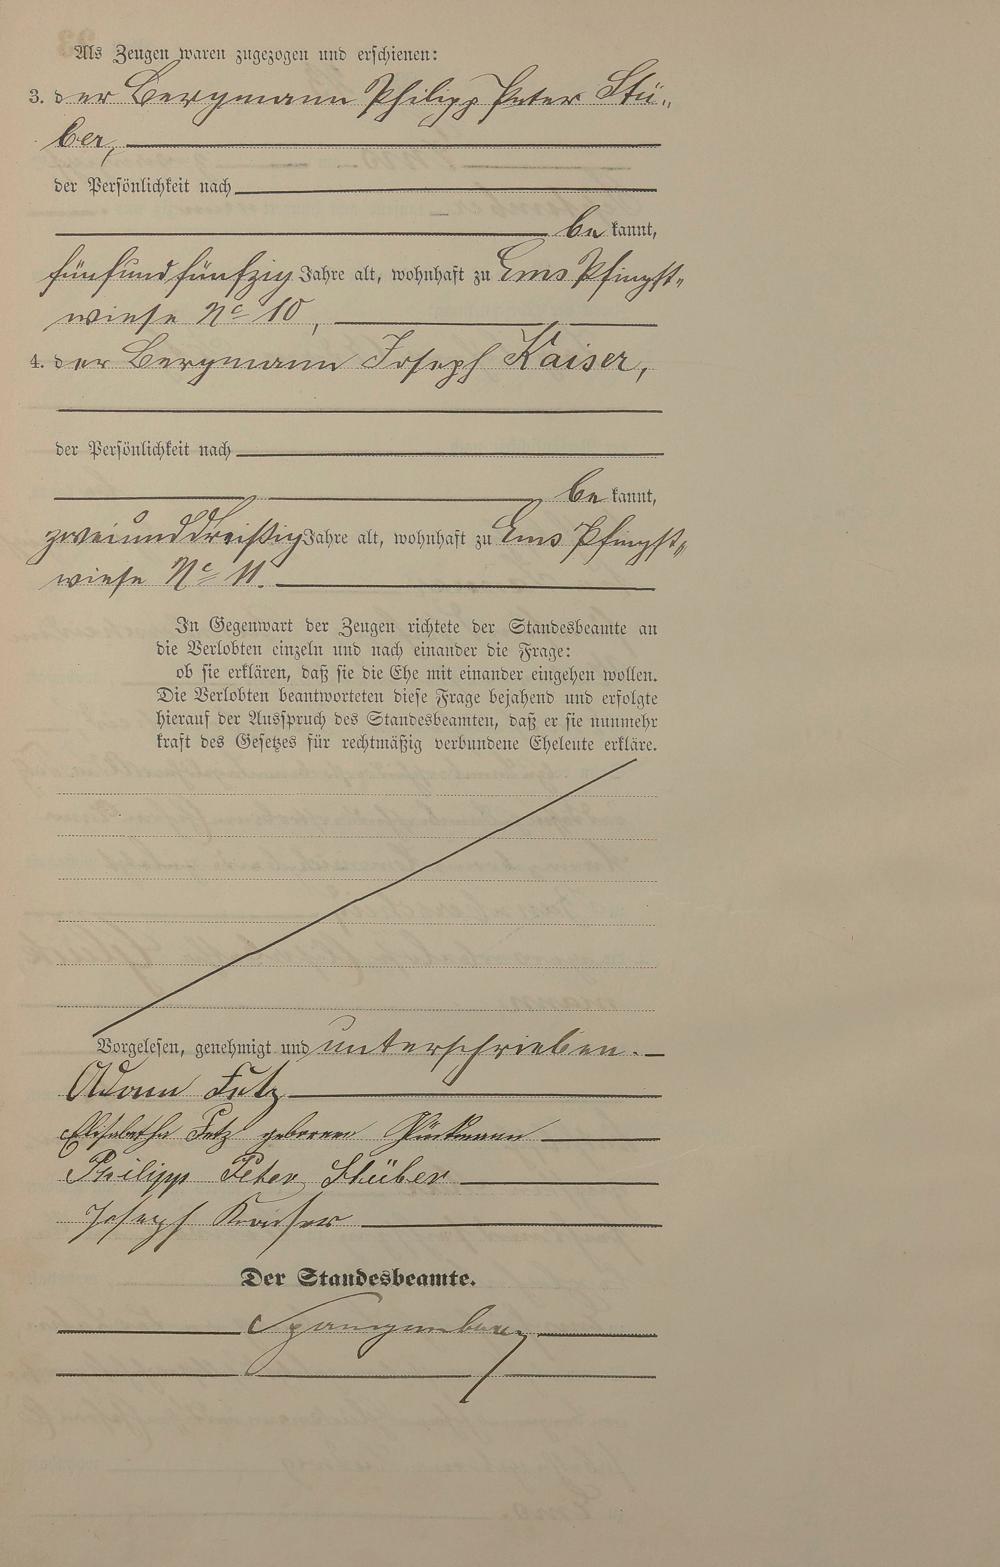 Als Zeugen waren zugezogen und erschienen:
3. der Bergmann Philipp Peter Stü-
ber,
der Persönlichkeit nach
be kannt,
fünfundfünfzig Jahre alt, wohnhaft zu Ems Pfingst-
wiese No 10,
4. der Bergmann Joseph Kaiser,
der Persönlichkeit nach
be kannt,
zweiunddreißig Jahre alt, wohnhaft zu Ems Pfingst-
wiese No 11.
In Gegenwart der Zeugen richtete der Standesbeamte an
die Verlobten einzeln und nach einander die Frage:
ob sie erklären, daß sie die Ehe mit einander eingehen wollen.
Die Verlobten beantworteten diese Frage bejahend und erfolgte
hierauf der Ausspruch des Standesbeamten, daß er sie nunmehr
kraft des Gesetzes für rechtmäßig verbundene Eheleute erkläre.
Vorgelesen, genehmigt und unterschrieben.
Adam Fetz
Elisabetha Fetz geborene
Philipp Peter Stüber
Joseph Kaiser
Der Standesbeamte.
Spangenberg